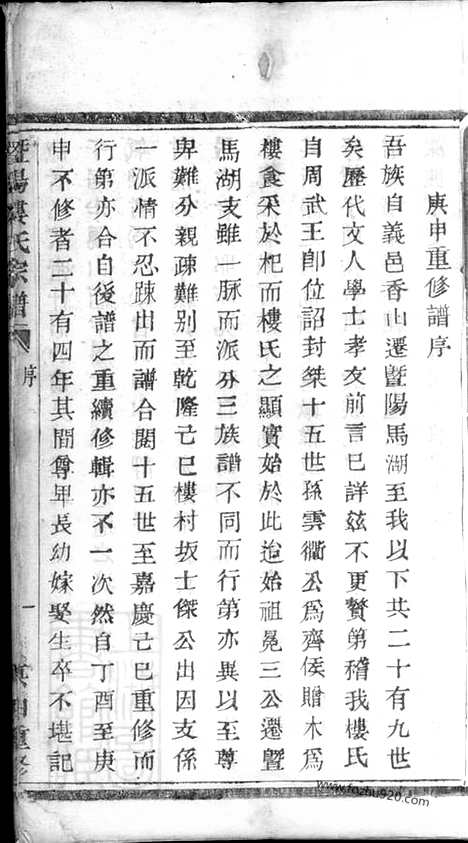 庚申重修譜序
吾族自義邑香山遷暨陽馬湖至我以下共二十有九世
矣歷代文人學士孝友前言已詳玆不更贅第稽我樓氏
自周武王卽位詔封桀十五世孫雲衢公爲齊侯贈木爲
樓食采於杞而樓氏之顯實始於此迨始祖冕三公遷暨
馬湖支雖一脈而派分三族譜不同而行第亦異以至尊
卑難分親疎難别至乾隆亡巳樓村坂士傑公出因支係
一派情不忍踈出而譜合閱十五世至嘉慶亡巳重修而
行第亦合自後譜之重續修輯亦不一次然自丁酉至庚
申不修者二十有四年其間尊畢長幼嫁娶生卒不堪記
暨陽 氏宗譜
序
一
庚申重修
www.fozhu920.com